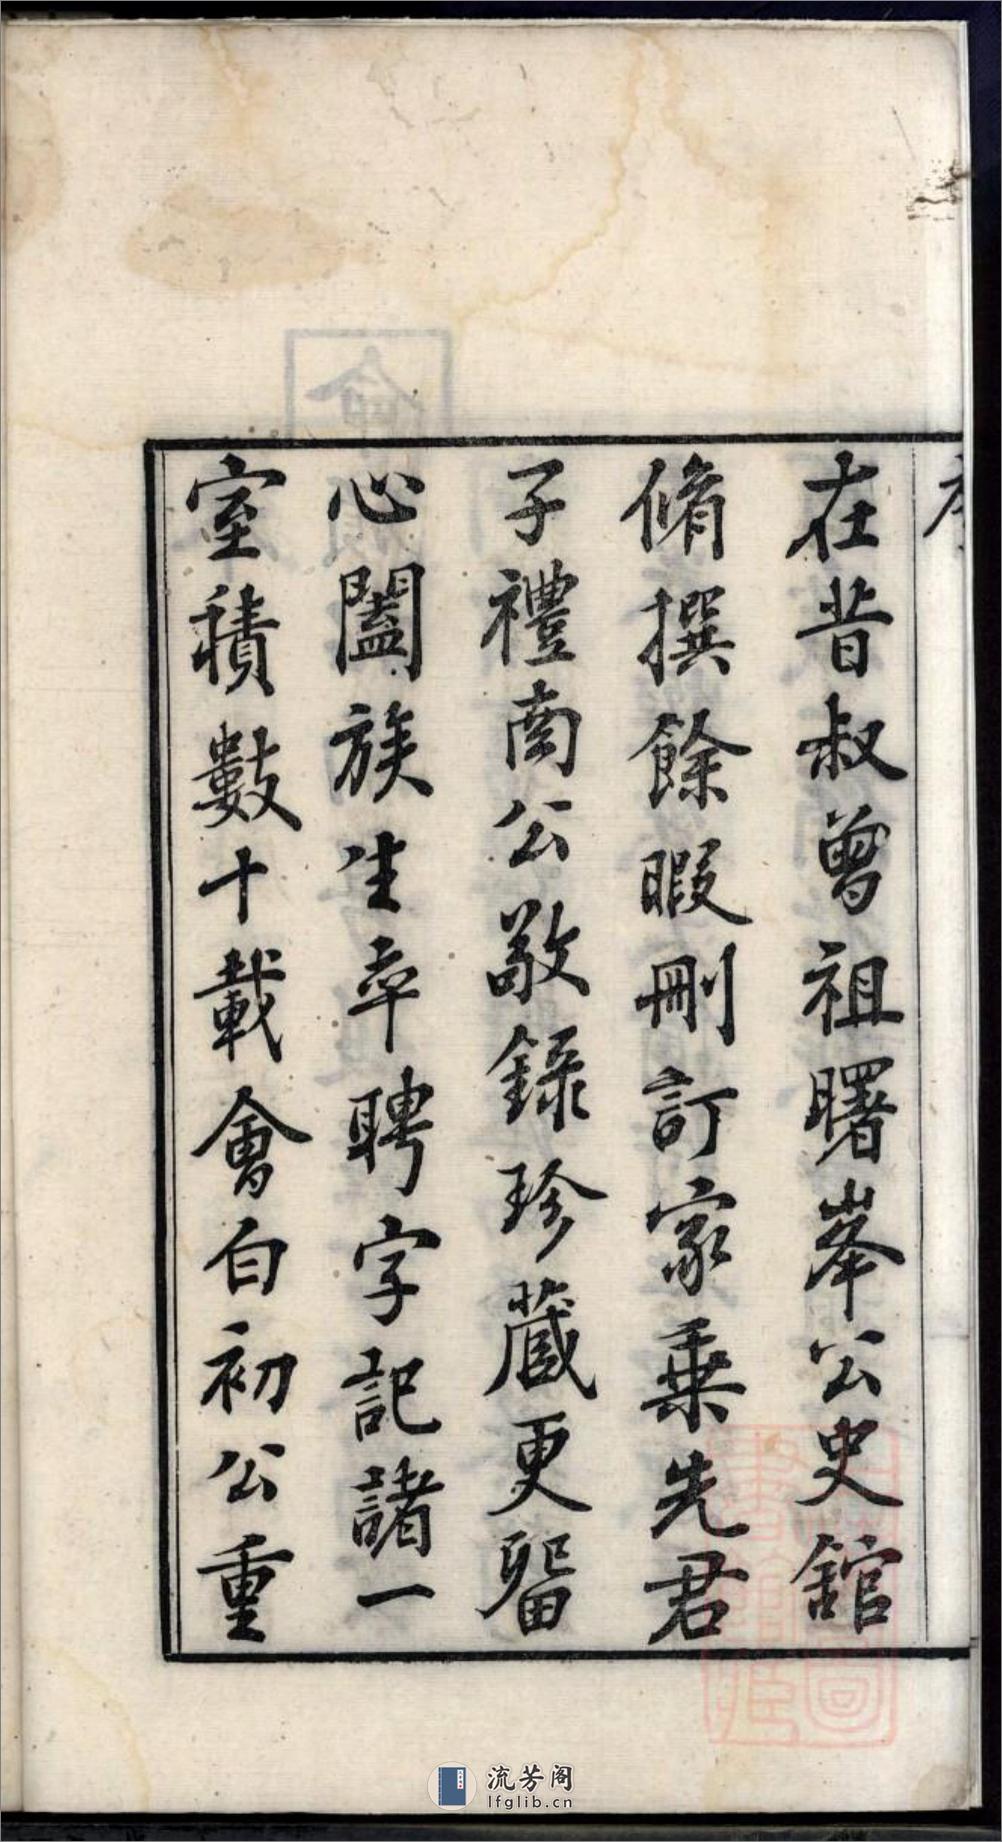 序
在昔叔曾祖曙峯公史舘
脩撰餘暇刪訂家乗先君
子禮南公敬録珍蔵更畱
心闔族生卒聘字記諸一
室積數十載會白初公重
流芳阁
lfglib.cn